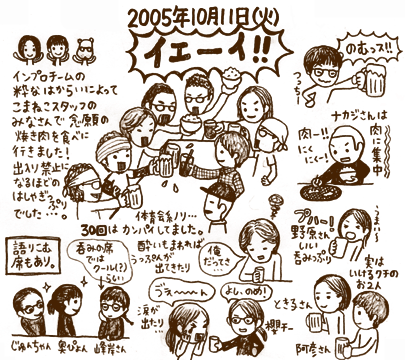 2005年10月11日(火)
イエーイ!!
インプロチームの
粋なはからいによって
こまねこスタッフの
みなさんで念願の
焼き肉を食べに
行きました!
出入り禁止に
なるほどの
はしゃぎっぷり
でした…。
体育会系ノリ…
30回はカンパイしてました。
のむっス!!
つっちー
ナカジさんは
肉に集中
肉ー!!
にくにくー!
プハー!
野原さん
いい
呑みっぷり
うまいっ
実は
いけるクチの
お2人
ときるさん
阿彦さん
語りこむ
席もあり。
呑みの席
では
クール(?)
らしい
じゅんちゃん
奥ぴよん
峰岸さん
酔いもまわれば
うっぷんが
出てきたり
俺
だってさ…
ごえ〜〜ん
よし、のめ!
涙が
出たり…
櫻チー